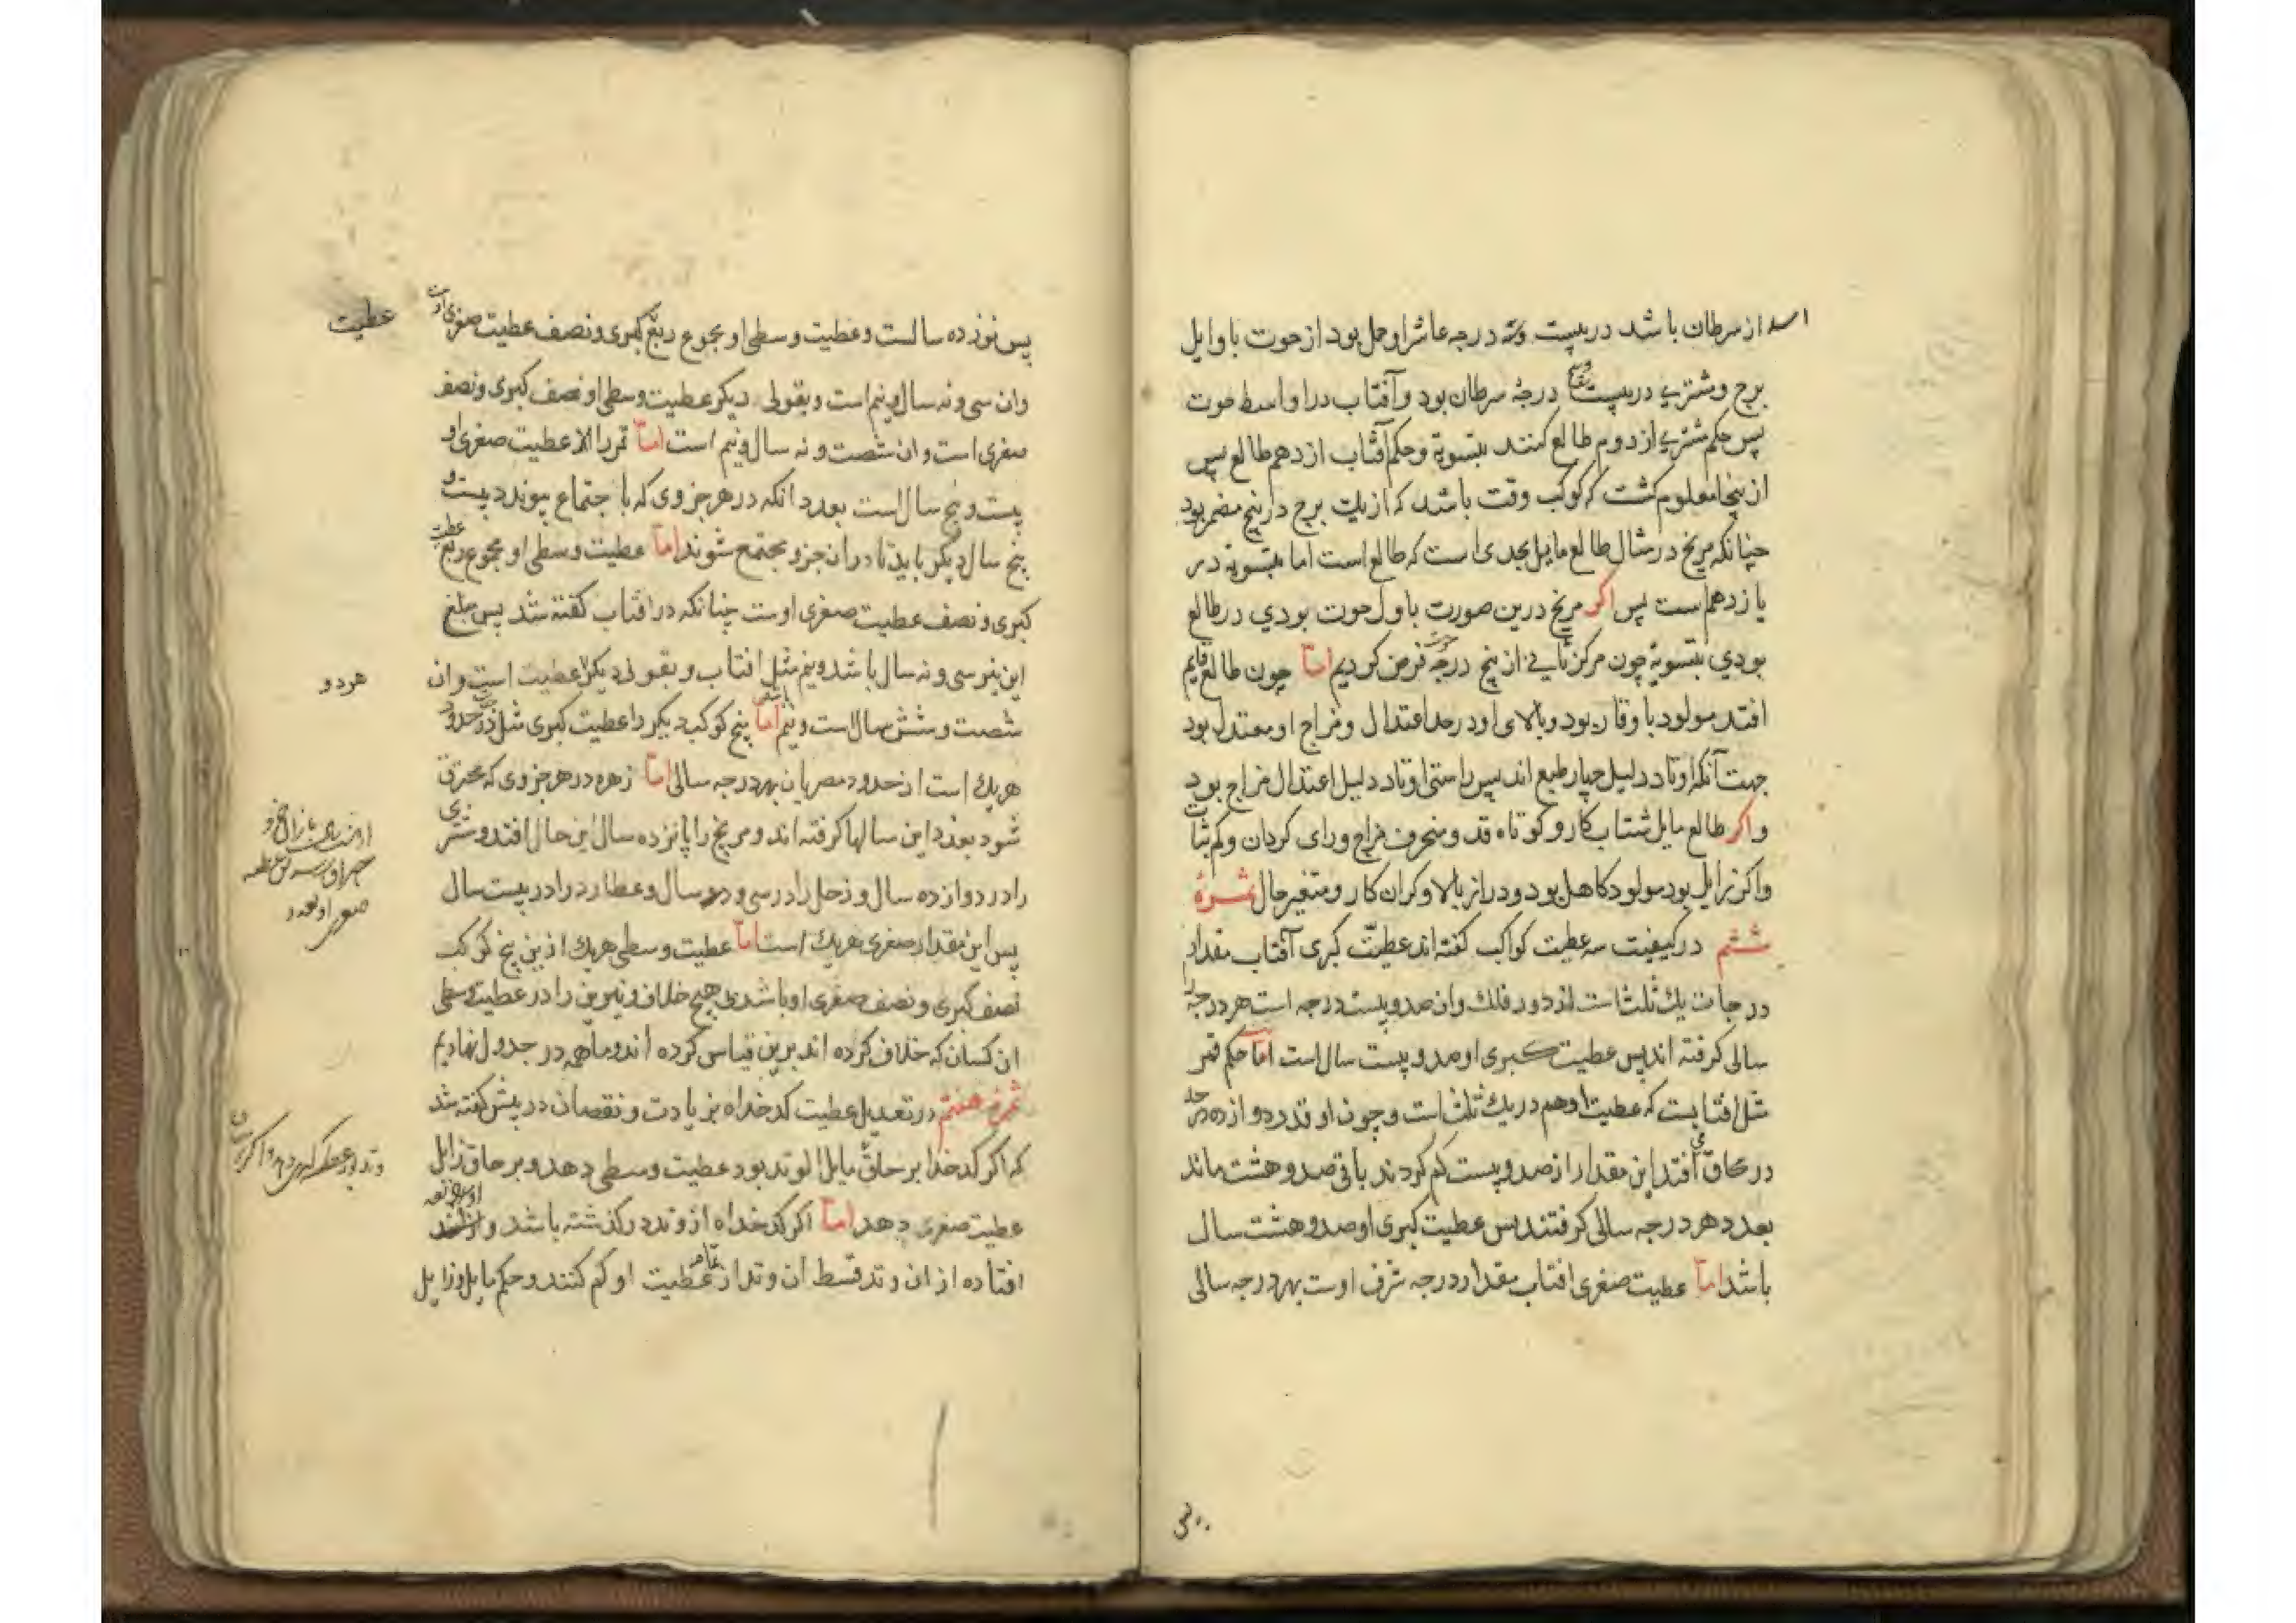 اسد از سرطان باشد در بیست درجه عاشر او حمل بود از حوت با وایل
برج و مشتری در بیست درجهٔ سرطان بود و آفتاب در اواسط حوت
پس حکم مشتری از دوم طالع کنند بتسویة و حکم آفتاب از دهم طالع پس
ازینجا معلوم کشت که کوکب وقت باشد که از یک برج در پنج مضمر بود
چنانکه مریخ در مثال طالع مایل بجدی است که طالع است اما بتسویه در
یازدهم است پس اکر مریخ درین صورت باول حوت بودی در طالع
بودی بتسویهٔ چون مرکز ثانی از پنج درجه فرض کردیم اما چون طالع قایم
افتد مولود با وقار بود و بالای او در حد اعتدال و مزاج او معتدل بود
جهت آنکه اوتاد دلیل چهار طبع اند پس راستی اوتاد دلیل اعتدال مزاج بود
و اکر طالع مایل شتاب کار و کوتاه قد و منحرف مزاج و رای کردان و کم ثبات
و اکر زایل بود مولود کاهل بود و دراز بالا و کران کار و متغیر حال ثمرهٔ
ششم در کیفیت سه عطیت کواکب کفته اند عطیّت کبری آفتاب مقدار
درجات یک ثلث است از دور فلک و ان صد و بیست درجه است هر درجه را
سالی کرفته اند پس عطیت کبری او صد و بیست سال است اما حکم قمر
مثل افتابست که عطیت او هم در یک ثلث است و چون او قدر دوازده درجه
در محاق می افتد این مقدار را از صد و بیست کم کردند باقی صد و هشت ماند
بعدد هر درجه سالی کرفتند پس عطیت کبری او صد و هشت سال
باشد اما عطیت صغری افتاب مقدار درجه شرف اوست بهر درجه سالی
پس نوزده سالست و عطیت وسطی او مجموع ربع کبری و نصف عطیت صغری اوست
عطیت
وان سی و نه سال و نیم است و بقولی دیکر عطیت وسطی او نصف کبری و نصف
صغری است و ان شصت و نه سال و نیم است اما قمر را عطیت صغری او
بیست و پنج سال است بعدد انکه در هر جزوی که با جتماع پیوندد بیست و
پنج سال دیکر باید تا در ان جزو مجتمع شوند اما عطیت وسطی او مجموع ربع عطیت
کبری و نصف عطیت صغری اوست چنانکه در افتاب کفته شد پس مبلغ
این نیز سی و نه سال باشد و نیم مثل افتاب و بقولی دیکر عطیت است و ان
هر دو
شصت و شش سال است و نیم اما پنج کوکب دیکر را عطیت کبری مثل حدود
هر یک است از حدود مصریان بهر درجه سالی اما زهره در هر جزوی که محترق
شود بعدد این سالها کرفته اند و مریخ را پانزده سال این حال افتد و مشتری
را در دوازده سال و زحل را در سی و دو سال و عطارد را در بیست سال
پس این مقدار صغری هر یک است اما عطیت وسطی هر یک ازین پنج کوکب
نصف کبری و نصف صغری او باشد بی هیچ خلاف و نیرین را در عطیت وسطی
ان کسان که خلاف کرده اند برین قیاس کرده اند و ما همه در جدول نهادیم
ثمرهٔ هفتم در تعدیل عطیت کدخداه بزیادت و نقصان در پیش کفته شد
که اکر کدخدا بر حاق مایل الوتد بود عطیت وسطی دهد و بر حاق زایل
عطیت صغری دهد اما اکر کدخداه از وتد در کذشته باشد و
افتاده از ان وتد قسط ان وتد از عطیت او کم کنند و حکم مایل و زایل